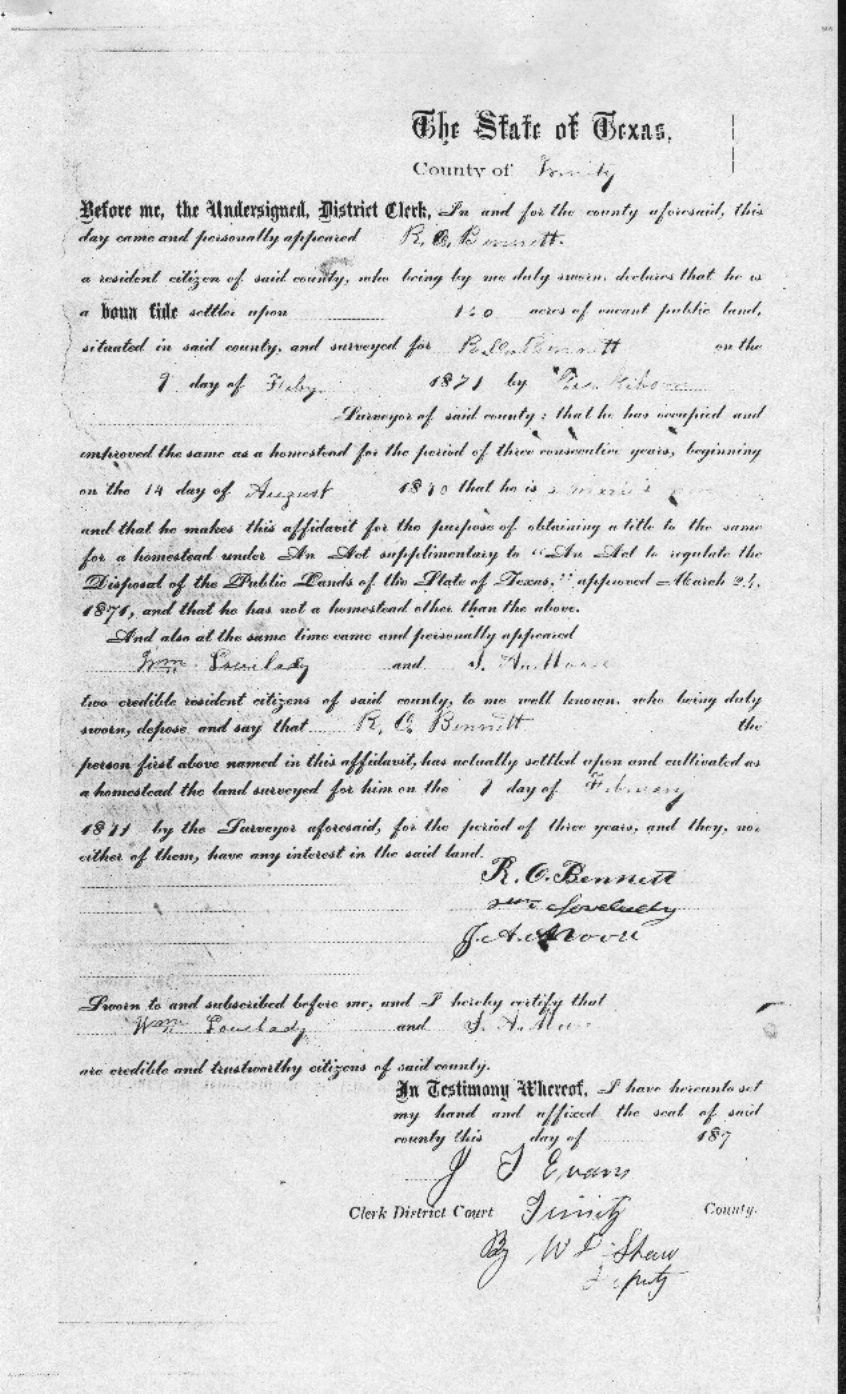 The State of Texas,
County of Trinity
Before me, the Undersigned, District Clerk, In and for the county aforesaid, this
day came and personally appeared R. O. Bennett.
a resident citizen of said county, who being by me duly sworn, declares that he is
a bona fide settler upon 160 acres of vacant public land,
situated in said county, and surveyed for Bennett on the
9 day of Feby. 1871 by
Surveyor of said county: that he has occupied and
improved the same as a homestead for the period of three consecutive years, beginning
on the 14 day of August 1870 that he is a
and that he makes this affidavit for the purpose of obtaining a title to the same
for a homestead under An Act supplimentary to "An Act to regulate the
Disposal of the Public Lands of the State of Texas," approved March 24,
1871, and that he has not a homestead other than the above.
And also at the same time came and personally appeared
Wm Lovelady and J. A. Moore
two credible resident citizens of said county, to me well known, who being duly
sworn, depose and say that R. O. Bennett the
person first above named in this affidavit, has actually settled upon and cultivated as
a homestead the land surveyed for him on the 9 day of February
1871 by the Surveyor aforesaid, for the period of three years, and they, nor
either of them, have any interest in the said land.
R. O. Bennett
Wm Lovelady
J. A. Moore
Sworn to and subscribed before me, and I hereby certify that
Wm Lovelady and J. A. Moore
are credible and trustworthy citizens of said county.
In Testimony Whereof, I have hereunto set
my hand and affixed the seal of said
county this day of 187
J T Evans
Clerk District Court Trinity County.
By W Shaw
Deputy